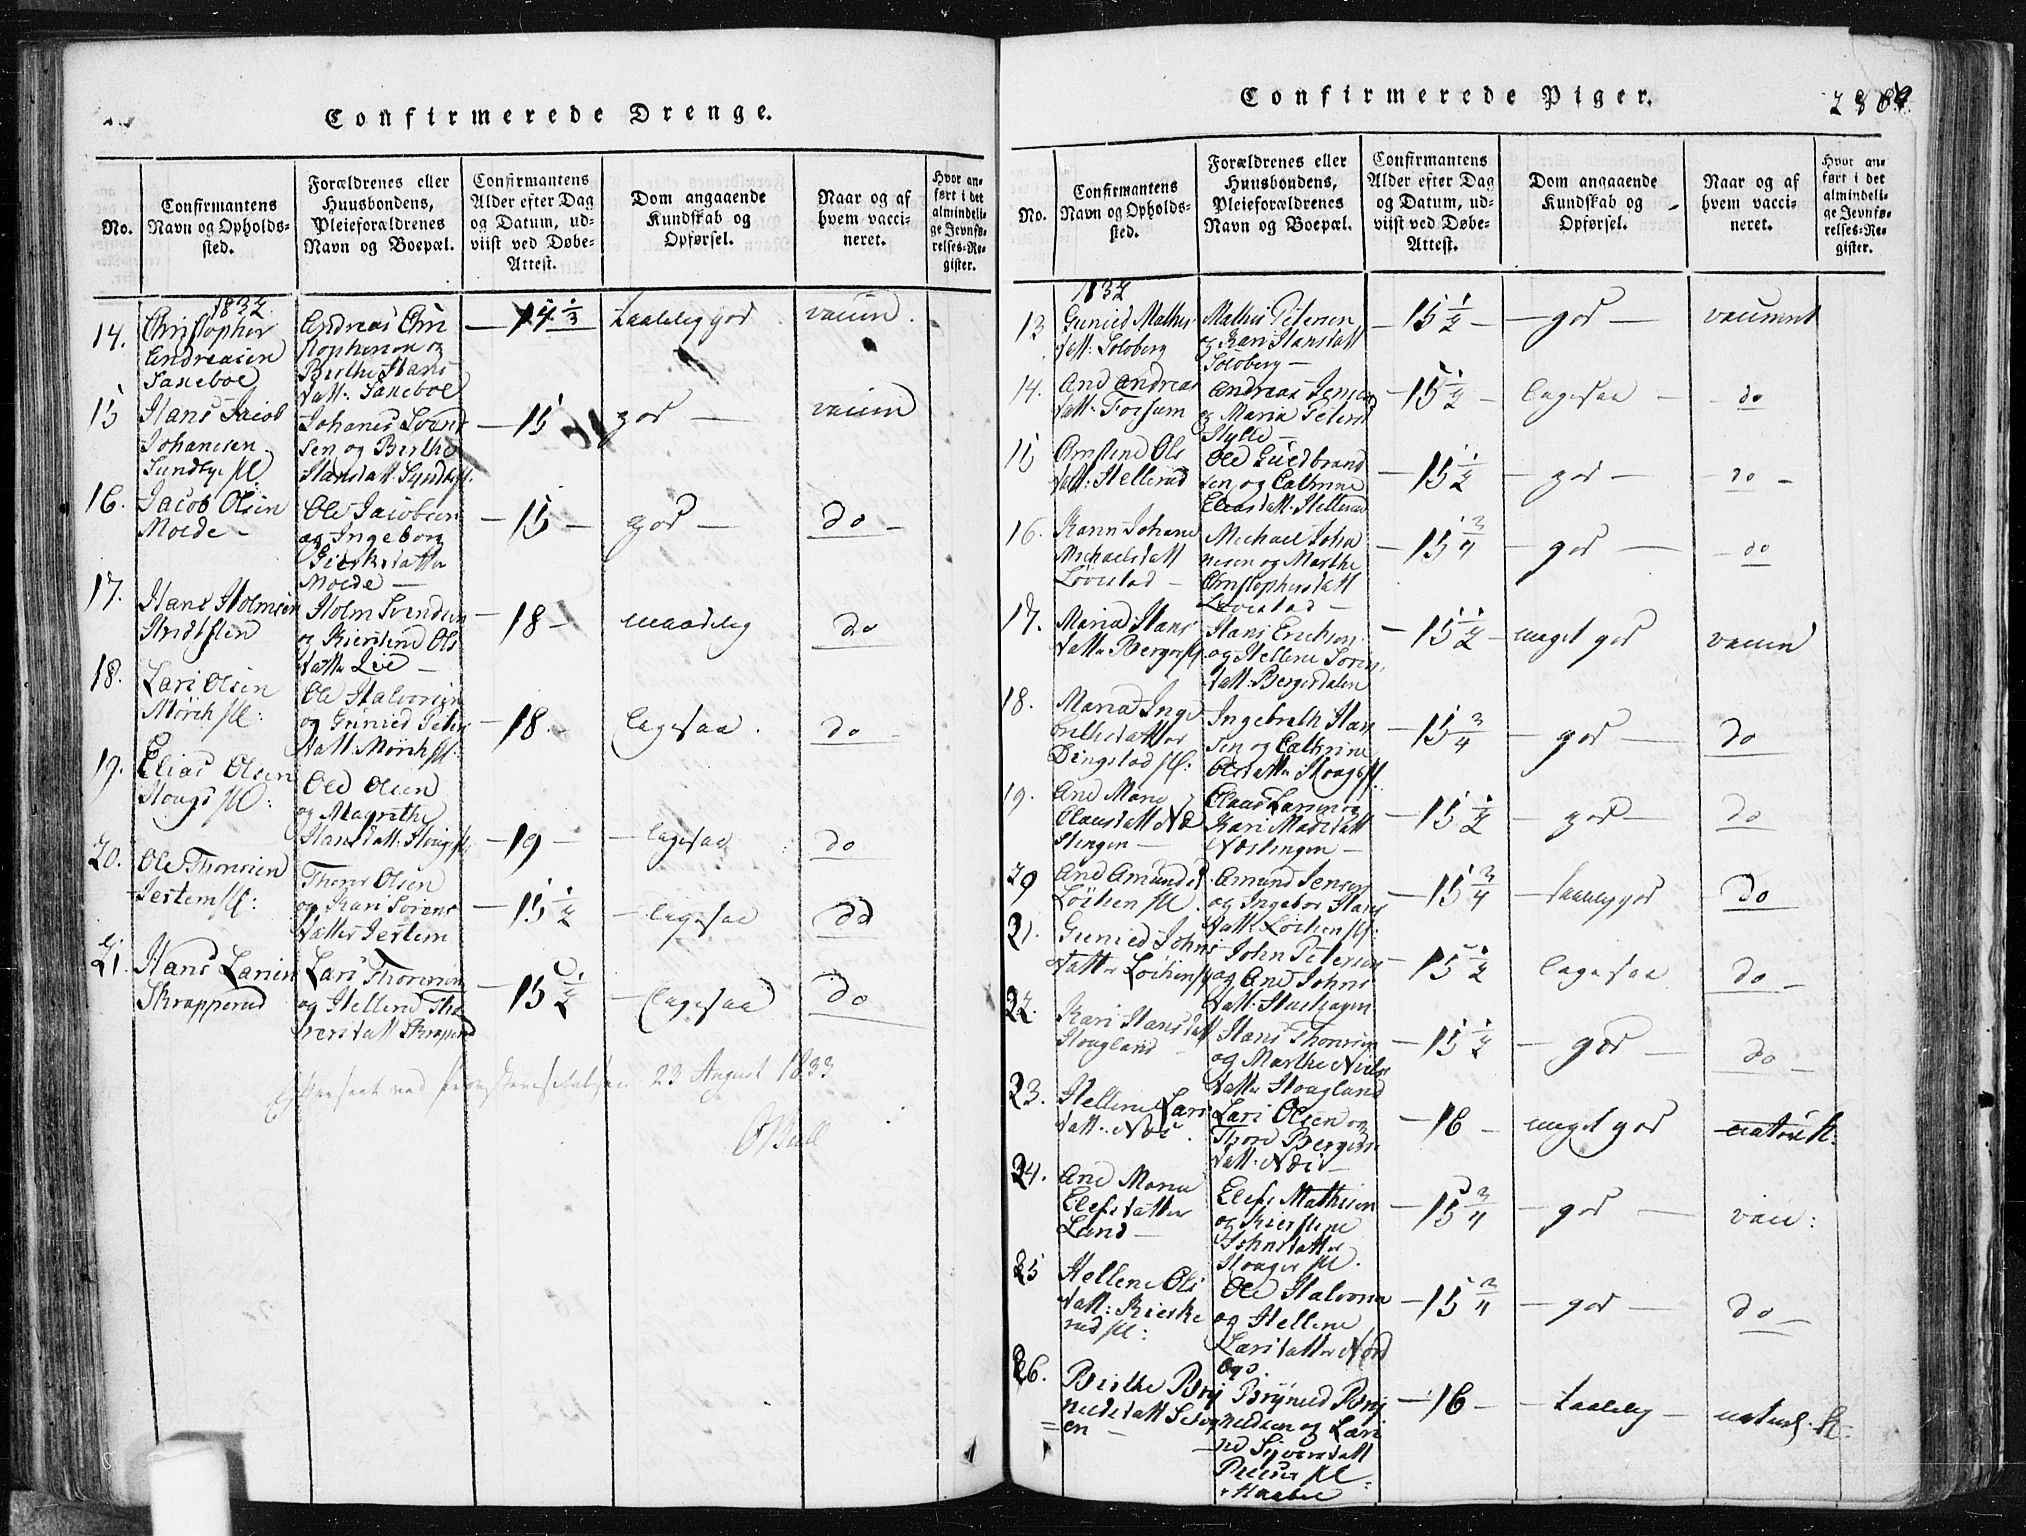 Confirmerede Drenge.
No.
Confirmantens
Navn og Opholds-
sted.
Forældrenes eller
Huusbondens,
Pleieforældrenes
Navn og Boepæl.
Confirmantens
Alder efter Dag
og Datum, ud-
viist ved Døbe-
Attest.
Dom angaaende
Kundskab og
Opførsel.
Naar og af
hvem vacci-
neret.
Hvor an-
ført i det
almindeli-
ge Jevnfø-
relses-Re-
gister.
1832
14.
Christopher
Andreasen
Saneboe
Andreas Chri
stophersen og
Birthe Hans
datt. Saneboe
14 1/3
taalelig god
vaccin.
15
Hans Jacob
Johanesen
Sundby pl.
Johanes Svend
sen og Birthe
Hansdatt. Syndby pl.
15
god
vaccin
16.
Jacob Olsen
Moede
Ole Jacobsen
og Ingebor
datter
Moede
15
god
do
17.
Hans Holmsen
Holm Svendsen
og Kierstine Ols
datter Lie
18
maadelig
do
18.
Lars Olsen
Mørch pl:
Ole Halvorsen
og Gunied Peters
datt. Mørch pl:
18.
ligesaa.
do
19.
Elias Olsen
Hougs pl:
Ole Olsen
og Magrethe
Hansdatt. Hougs pl.
19
ligesaa
do
20.
Ole Thoresen
Jestem pl:
Thores Olsen
og Kari Sorens
datter Jestem
15 1/2
ligesaa
do
21.
Hans Larsen
Skrapperud
Lars Thoresen
og Hellene Tho
resdatt. Skrapperud
15 1/2
ligesaa
do
23 August 1833
Bull
Confirmerede Piger.
No.
Confirmantens
Navn og Opholds-
sted.
Forældrenes eller
Huusbondens,
Pleieforældrenes
Navn og Boepæl.
Confirmantens
Alder efter Dag
og Datum, ud-
viist ved Døbe-
Attest.
Dom angaaende
Kundskab og
Opførsel.
Naar og af
hvem vacci-
neret.
Hvor an-
ført i det
almindeli-
ge Jevnfø-
relses-Re-
gister.
1832
13
Gunied Mathis
datt. Soloberg
Mathis Petersen
og Kari Hansdatt
Soloberg
15 1/2
god
14.
Ane Andreas
datt. Fossum
Andreas Jensen
og Maria Peters
Hylle
15 1/2
ligesaa
do
15
Christine Ols
datt: Hellerud
Ole Guldbrand
sen og Cathrine
Eliasdatt. Hellerud
15 1/2
god
do
16.
Karin Johane
Michaelsdatt
Løvestad
Michael Joha
nesen og Marthe
Christophersdatt
Løvestad
15 3/4
god
do
17.
Maria Hans
datter Berger pl
Hans Erichsen
og Hellene Soren
datt: Bergersdalen
15 1/2
meget god
vaccin
18.
Maria Inge
brethsdatter
Dingstad pl:
Ingebreth Han
sen og Cathrine
Olsdatter Hougs pl.
15 3/4
god
do
19.
Ane Marie
Clausdatt Næ
stingen
Claus Larsen og
Kari Madsdatt
Næstingen
15 1/2
god
do
20
Ane Amunds
Løchen pl.
Amund Jensen
og Ingebor Hans
datt. Løchen pl:
15 3/4
taalelig god
do
21.
Gunied Johns
datter Løchens pl
John Petersen
og Ane Johns
datt. Hushagen
15 1/2
ligesaa
do
22.
Kari Hansdatt
Hougland
Hans Thoresen
og Marthe Niels
datter Hougland
15 1/2
god
do
23.
Hellene Lars
datt. Næs
Lars Olsen og
Thore Bergers
datt. Næs
16
meget god
24.
Ane Maria
Elefsdatter
Lund
Elefs Mathisen
og Kierstine
Johnsdatter
Houger pl.
15 3/4
god
vacc:
25
Hellene Ols
datt: Kierke
rud pl:
Ole Halvorsen
og Hellene
Larsdatter Nord
bye
15 3/4
god
do
26.
Birthe Bry
nildsdatt
en
Brynild Bry
nildsen og Lari
ne Syversdatt
pl
16
taalelig
naturl. K: